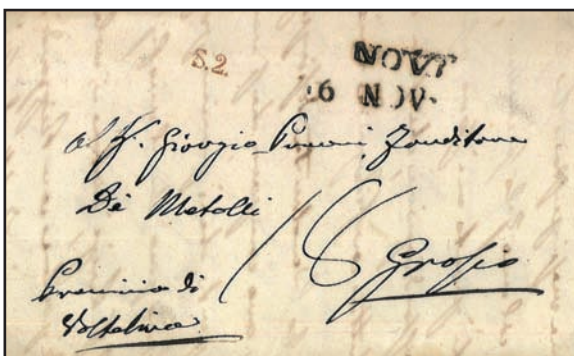 S.2.
NOVI
6 NOV.
al S. Giorgio Fonditore
Dè Metalli
16 Grosio
Provincia di
Valtelina